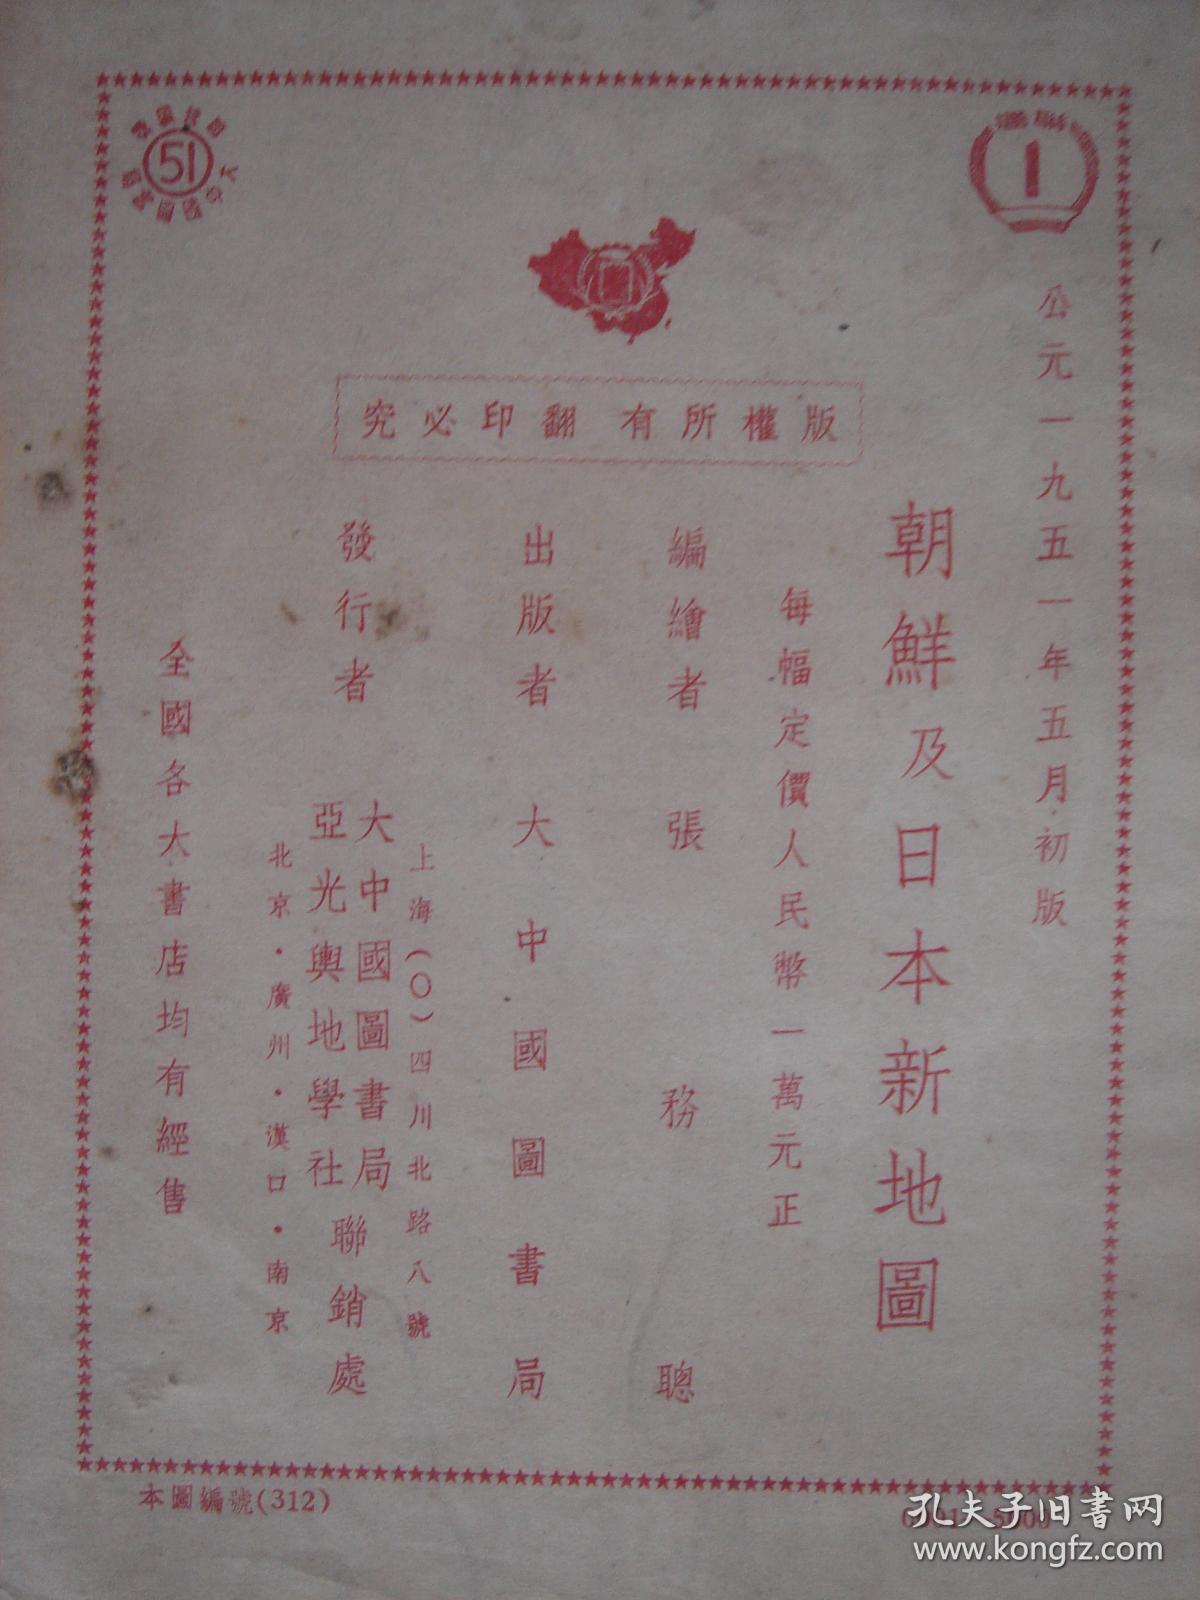 公元一九五一年五月初版
1
51
版權所有 翻印必究
朝鮮及日本新地圖
每幅定價人民幣一萬元正
編繪者 張務聰
出版者 大中國圖書局
發行者
上海(〇)四川北路八號
大中國圖書局
亞光輿地學社
聯銷處
北京·廣州·漢口·南京
全國各大書店均有經售
本圖編號(312)
孔夫子旧书网
www.kongfz.com